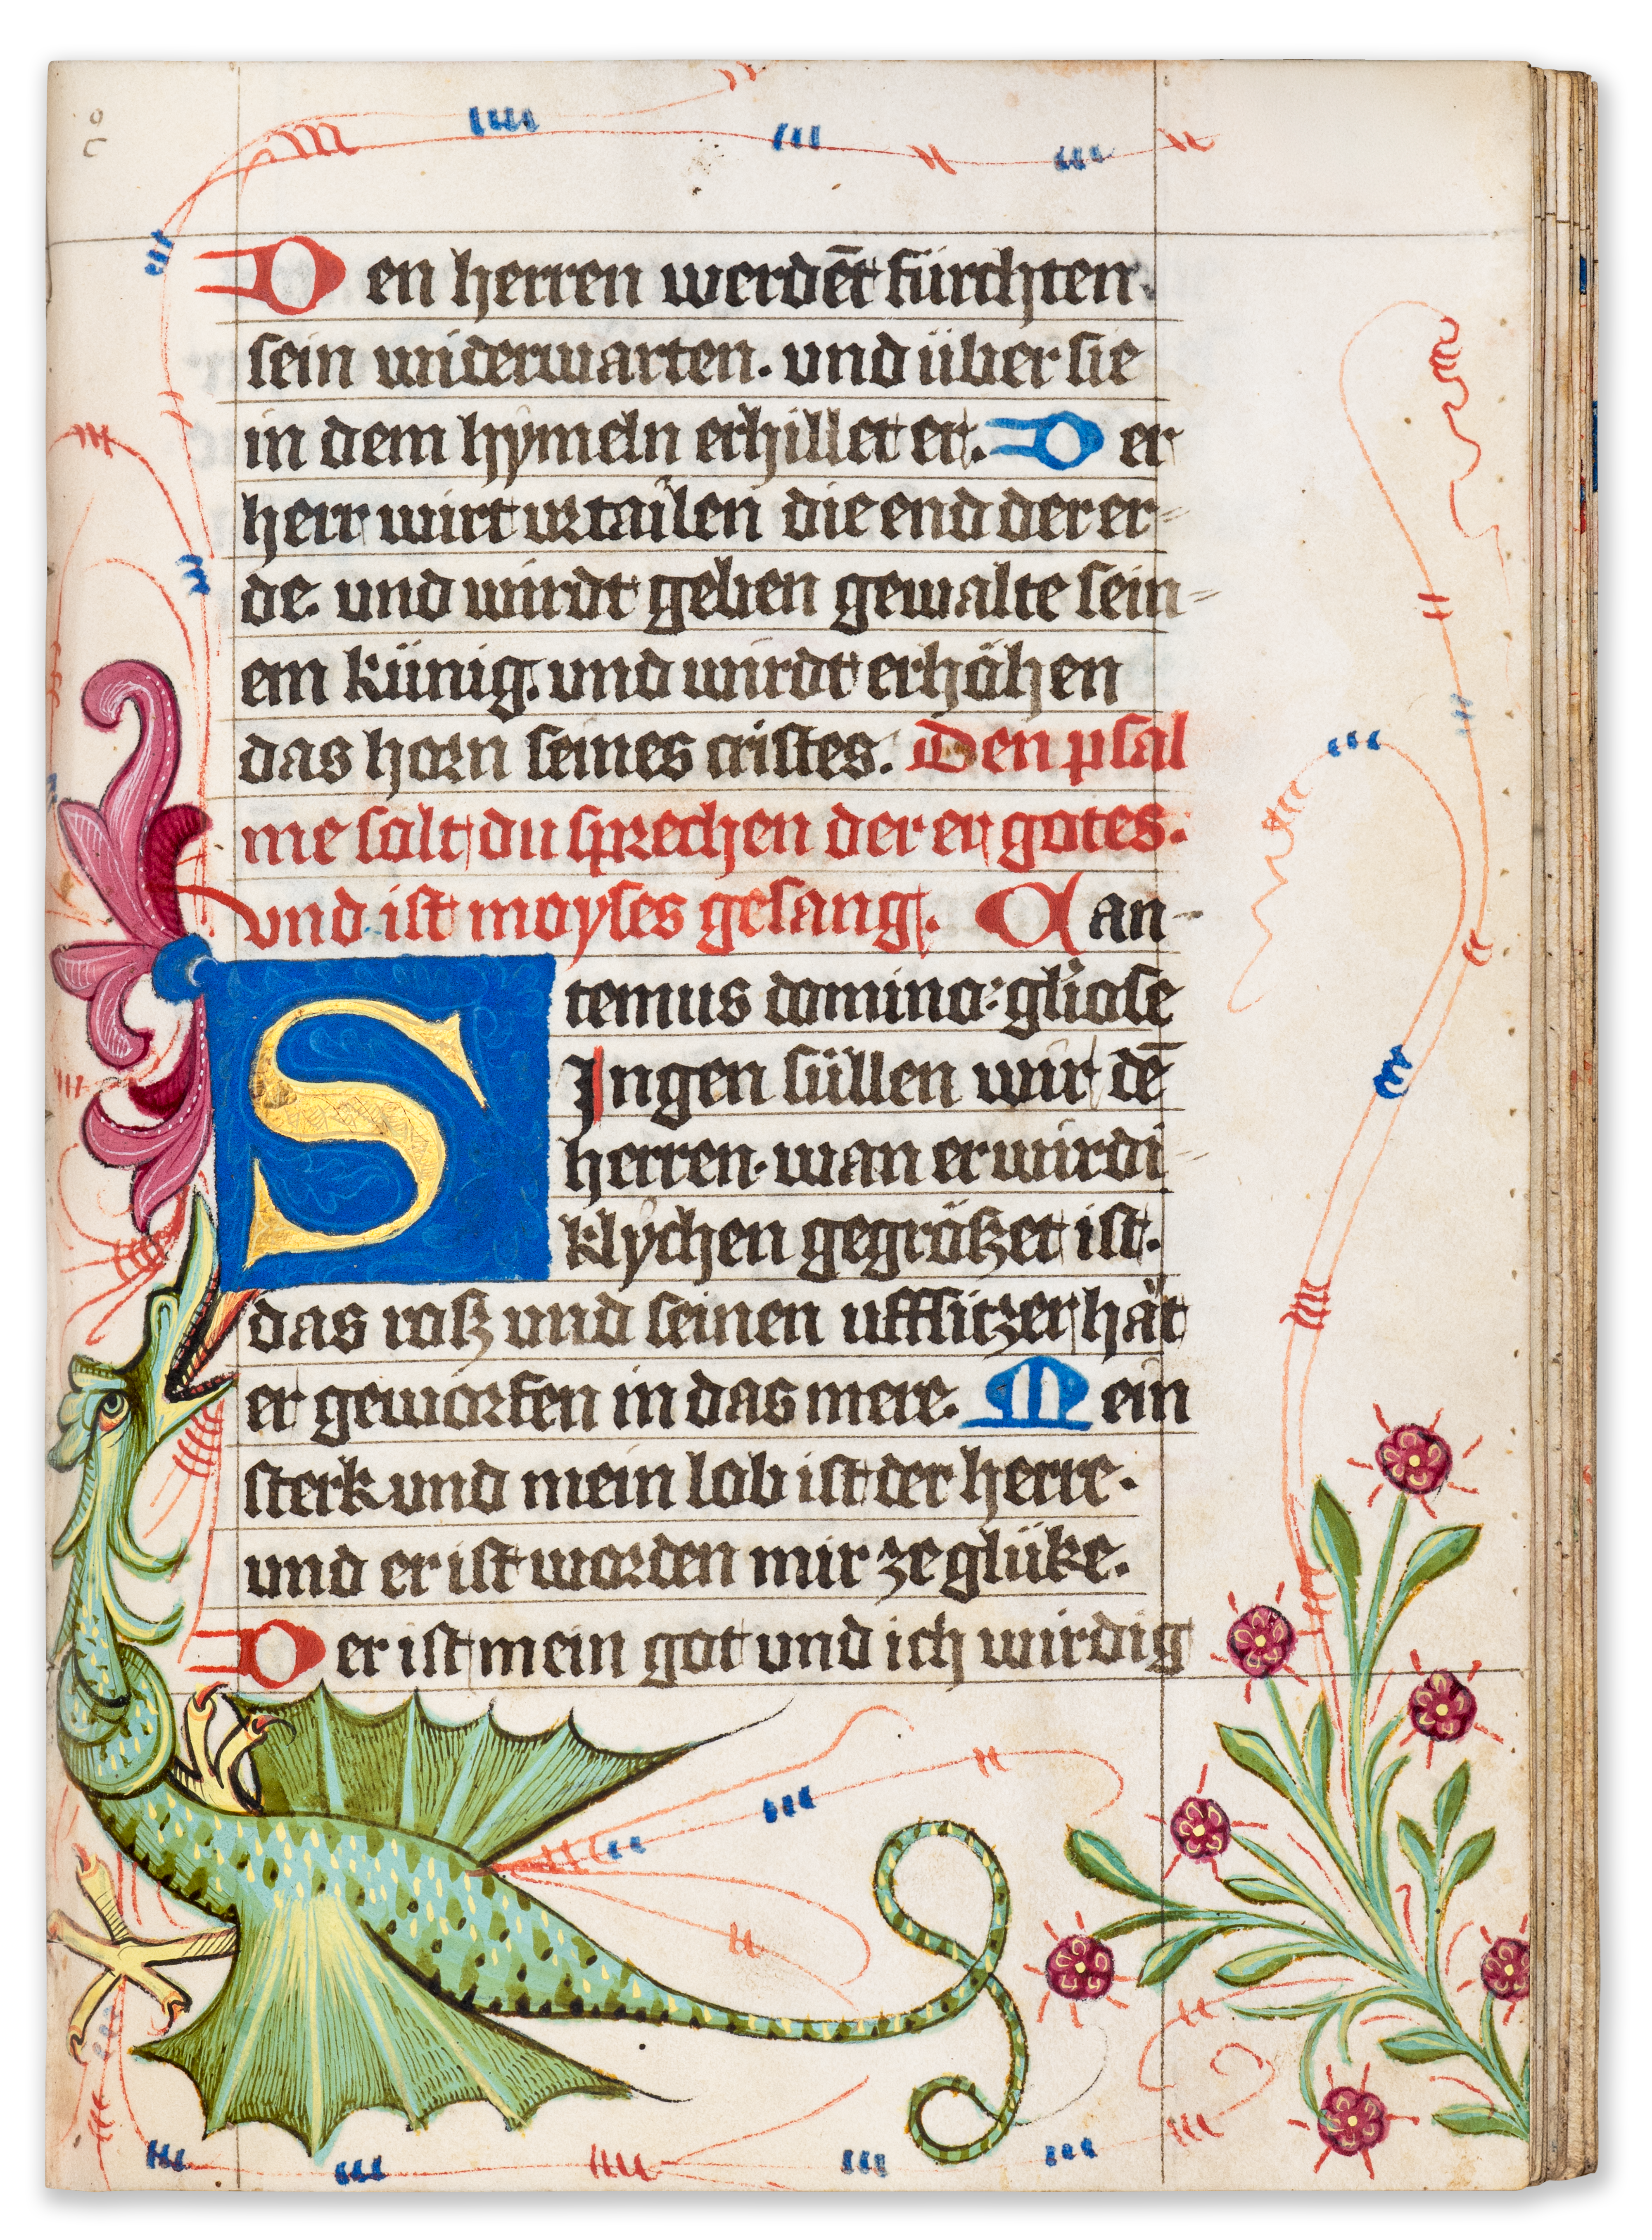 Den herren werdēt fürchten.
sein widerwarten. und über sie
in dem hymeln erhillet er. Der
herr wirt urtailen die end der er=
de. und wirdt geben gewalte sein=
em künig. und wirdt erhöhen
das horn seines cristes. Den psal
me solt du sprechen der er gotes.
vnd ist moyses gesang. Can-
temus domino: gl'iose
Singen süllen wir dē
herren. wan er wirdi=
klychen gegrößet ist.
das roß und seinen uffsitzer hät
er geworfen in das mere. Mein
sterk und mein lob ist der herre.
und er ist worden mir ze glüke.
Der ist mein got und ich wirdig